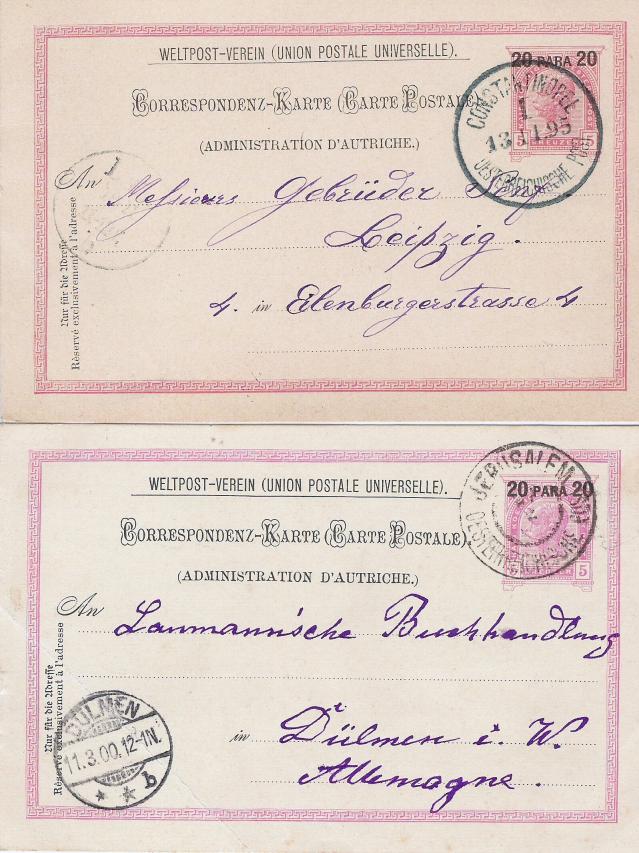 WELTPOST-VEREIN (UNION POSTALE UNIVERSELLE).
20 PARA 20
CORRESPONDENZ-KARTE (CARTE POSTALE)
CONSTANTINOPEL
1
(ADMINISTRATION D'AUTRICHE.)
OESTERREICHISCHE POST
5 KREUZER 5
1
An Messieurs Gebrüder
Leipzig.
4. in Eilenburgerstrasse 4
Nur für die Adresse
Réservé exclusivement à l'adresse
WELTPOST-VEREIN (UNION POSTALE UNIVERSELLE).
JERUSALEM
20 PARA 20
CORRESPONDENZ-KARTE (CARTE POSTALE)
(ADMINISTRATION D'AUTRICHE.)
5
An Laumannische Buchhandlung
in Dülmen i. W.
Allemagne.
Nur für die Adresse
Réservé exclusivement à l'adresse
DÜLMEN
11.3.00.12-1N.
* * b